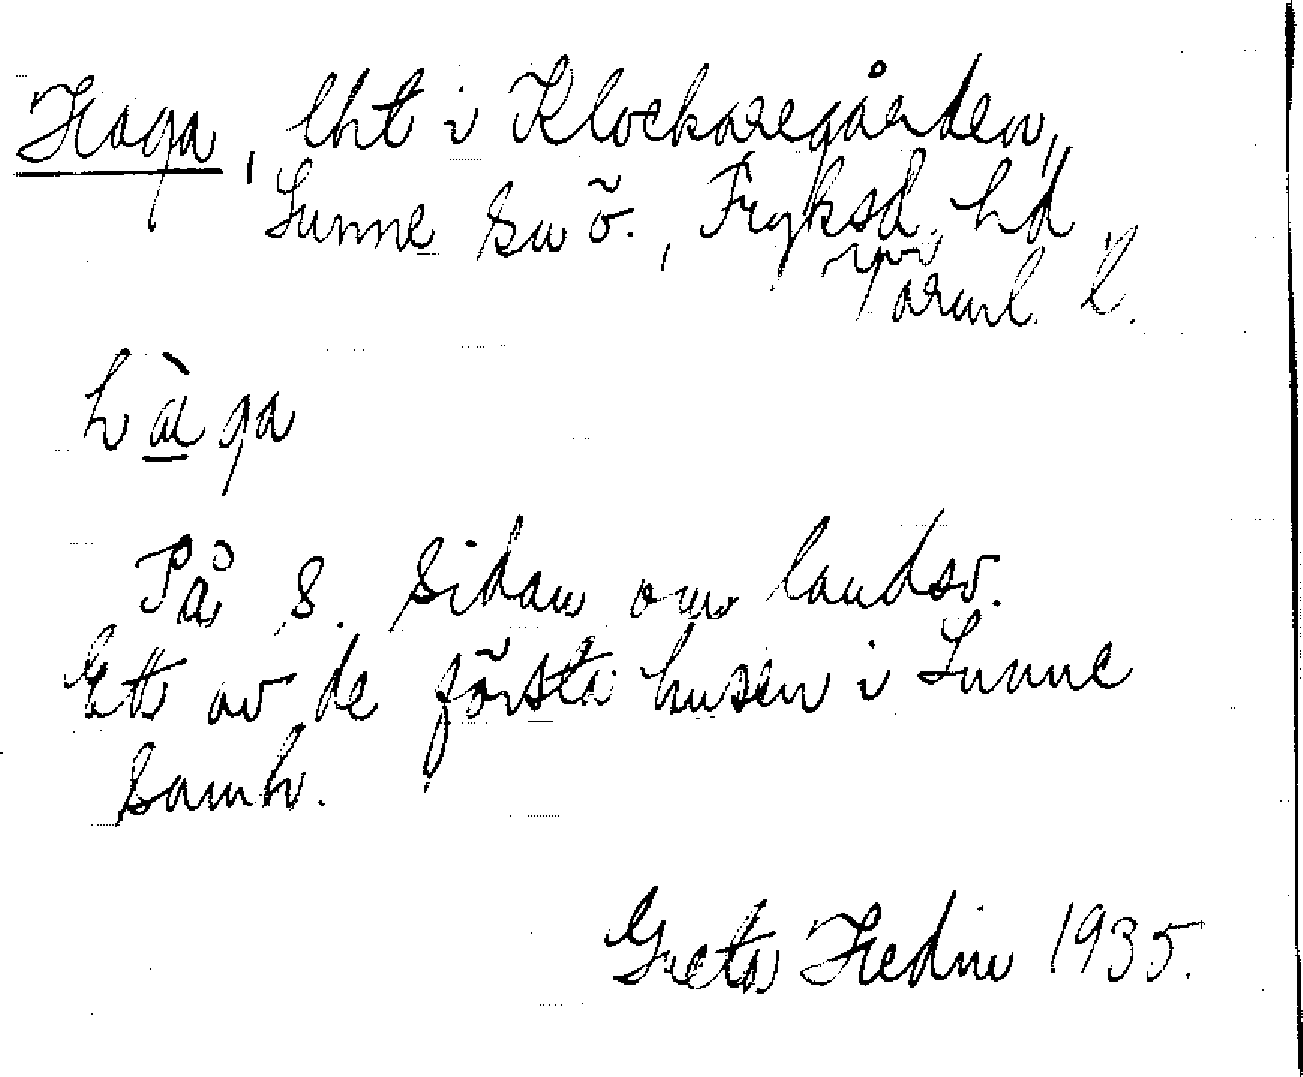 Haga, lht i Klockaregården,
Sunne sn ö., Fryksd. hd,
Värml. l.
hàga
På s. sidan om landsv.
Ett av de första husen i Sunne
samh.
Greta Hedin 1935.